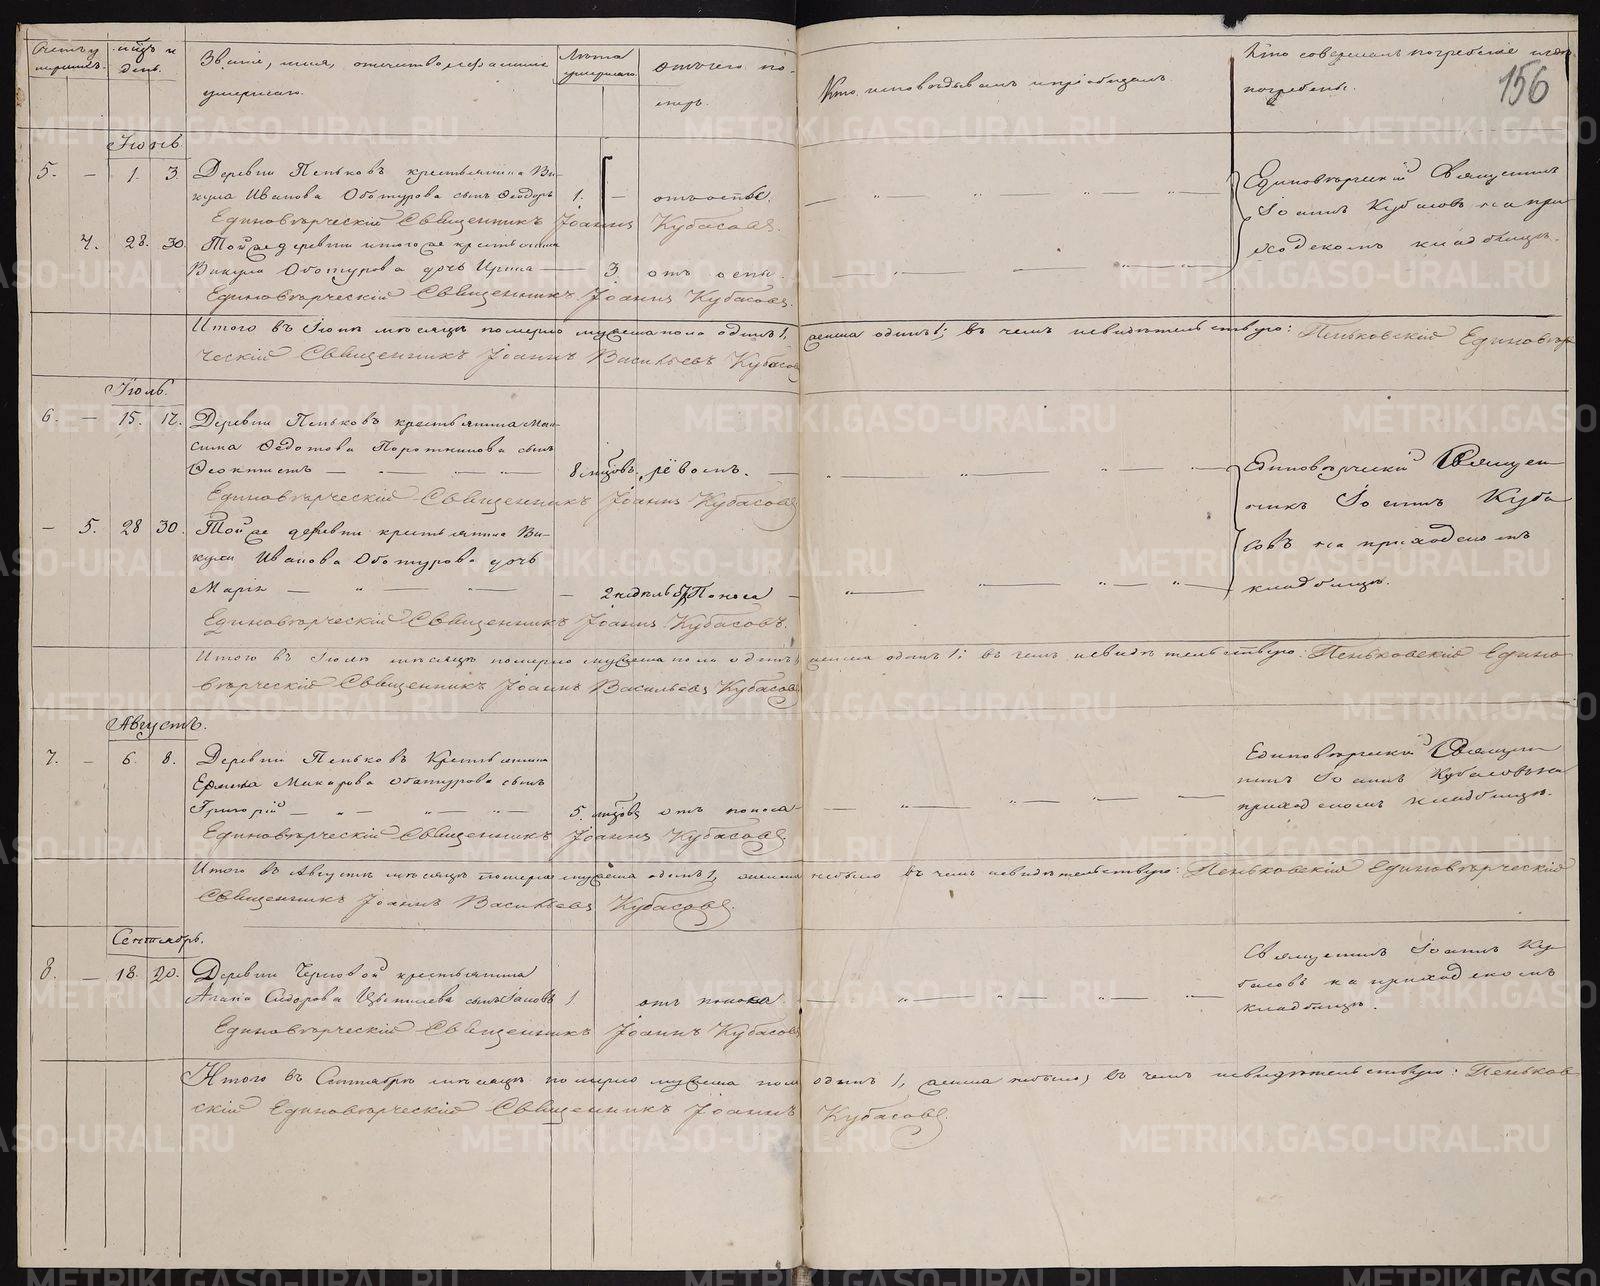 Счетъ умершихъ.
мѣсяцъ и день.
Званіе, имя, отчество и фамилія умершаго.
Лѣта умершаго.
отъ чего померъ.
Кто исповѣдывалъ и пріобщалъ
Кто совершалъ погребеніе и гдѣ погребены.
156
Іюнь.
5. — 1. 3. Деревни Пеньковъ крестьянина Ви-
кула Иванова Обатурова сынъ Ѳеодоръ 1. — отъ оспы.
Единовѣрческій Священникъ Іоаннъ Кубасовъ.
Единовѣрческій Священникъ
Іоаннъ Кубасовъ на при
ходскомъ кладбищѣ.
4. 28. 30. Той же деревни и того же крестьянина
Викула Обатурова дочь Ирина — 3 отъ оспы.
Единовѣрческій Священникъ Іоаннъ Кубасовъ.
Итого въ Іюнѣ мѣсяцѣ померло мужеска пола одинъ 1, женска одинъ 1; въ чемъ и свидѣтельствую: Пеньковскій Единовѣр
ческій Священникъ Іоаннъ Васильевъ Кубасовъ
Іюль.
6. — 15. 17. Деревни Пеньковъ крестьянина Мак-
сима Ѳедотова сынъ
Ѳеоктистъ — 8 мѣсяцовъ
Единовѣрческій Священникъ Іоаннъ Кубасовъ
Единовѣрческій Священ
никъ Іоаннъ Куба
совъ на приходскомъ
кладбищѣ.
— 5. 28 30. Той же деревни крестьянина Ви-
кула Иванова Обатурова дочь
Марія — 2 недѣль Поноса
Единовѣрческій Священникъ Іоаннъ Кубасовъ.
Итого въ Іюлѣ мѣсяцѣ померло мужеска пола одинъ 1, женска одинъ 1; въ чемъ и свидѣтельствую: Пеньковскій Едино
вѣрческій Священникъ Іоаннъ Васильевъ Кубасовъ
Августъ.
7. — 6. 8. Деревни Пеньковъ Крестьянина
Макарова Обатурова сынъ
Григорій — 5. мѣсяцовъ отъ поноса
Единовѣрческій Священникъ Іоаннъ Кубасовъ.
Единовѣрческій Священ
никъ Іоаннъ Кубасовъ на
приходскомъ кладбищѣ.
Итого въ Августѣ мѣсяцѣ померло мужеска одинъ 1, женска небыло въ чемъ и свидѣтельствую: Пеньковскій Единовѣрческій
Священникъ Іоаннъ Васильевъ Кубасовъ.
Сентябрь.
8. — 18. 20. Деревни Черновой крестьянина
Сидорова сынъ 1. отъ поноса
Единовѣрческій Священникъ Іоаннъ Кубасовъ
Священникъ Іоаннъ Ку
басовъ на приходскомъ
кладбищѣ.
Итого въ Сентябрѣ мѣсяцѣ померло мужеска пола одинъ 1, женска небыло, въ чемъ и свидѣтельствую: Пеньков
скій Единовѣрческій Священникъ Іоаннъ Кубасовъ.
METRIKI.GASO-URAL.RU